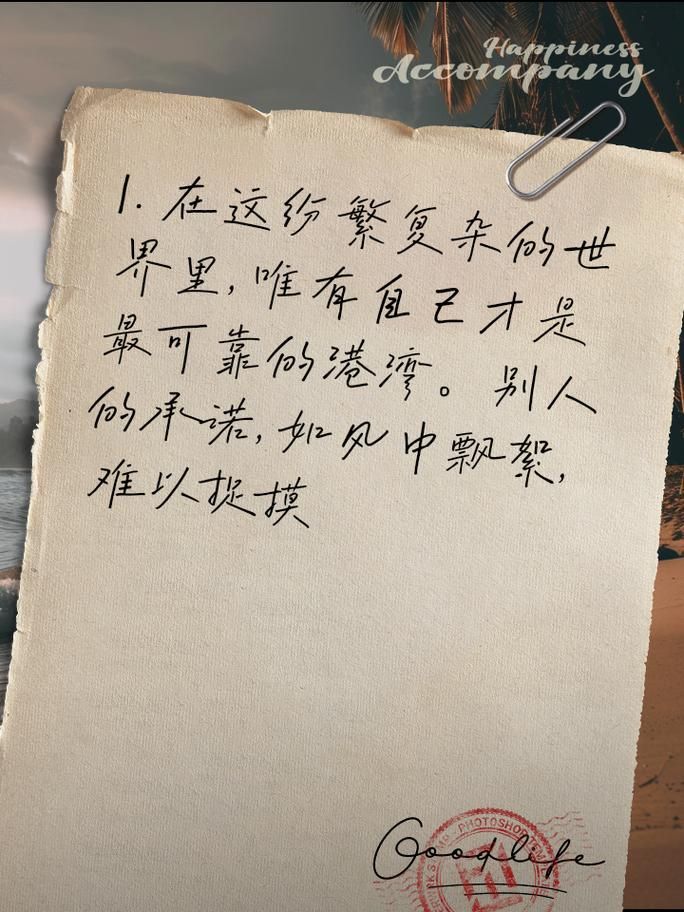 Happiness
Accompany
1. 在这纷繁复杂的世
界里，唯有自己才是
最可靠的港湾。别人
的承诺，如风中飘絮，
难以捉摸
PHOTOSHOP
Goodlife